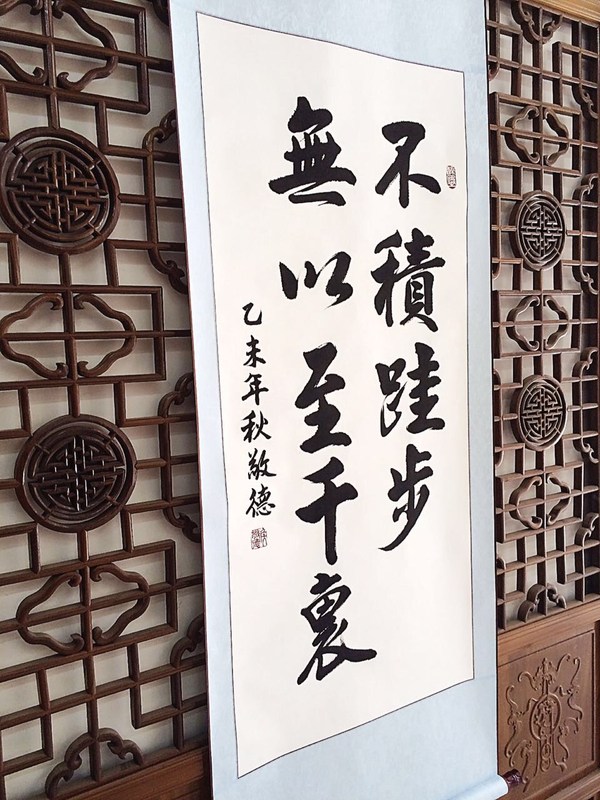 不積跬步
無以至千裏
乙未年秋敬德